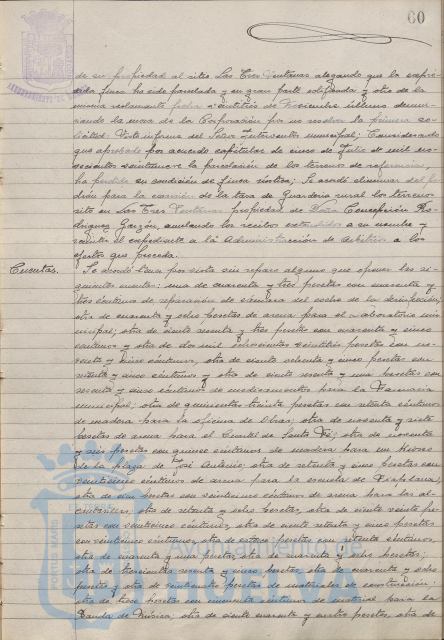 60
de su propiedad al sitio Las Tres Ventanas alegando que la expre-
sada finca ha sido parcelada y en gran parte edificada y otro de la
misma reclamante fecha veintitrés de Noviembre último denun-
ciando la mora de la Corporación por no resolver la primera so-
licitud: Visto informe del Señor Interventor municipal; Considerando
que aprobado por acuerdo capitular de cinco de Julio de mil no-
vecientos la parcelación de los terrenos de referencia,
ha perdido su condición de finca rústica; Se acordó eliminar del Pa-
drón para la exacción de la tasa de Guardería rural los terrenos
sito en Las Tres Ventanas propiedad de Doña Concepción Ro-
dríguez Garzón, anulando los recibos extendidos a su nombre y
el expediente a la Administración de Arbitrios a los
efectos que proceda.
Cuentas. Se acordó por vista sin reparo alguno que oponer las si-
guientes cuentas: una de cuarenta y tres pesetas con cuarenta y
tres céntimos de reparación de del coche de la desinfección;
otra de cuarenta y ocho pesetas de arena para el Laboratorio mu-
nicipal; otra de ciento sesenta y tres pesetas con cuarenta y cinco
céntimos y otra de dos mil ochocientas veintitrés pesetas con no-
venta y cinco céntimos, otra de ciento ochenta y cinco pesetas con
y cinco céntimos y otra de ciento setenta y una pesetas con
y cinco céntimos de medicamentos para la Farmacia
municipal; otra de quinientas treinta pesetas con setenta céntimos
de madera para la oficina de Obras; otra de noventa y siete
pesetas de arena para el Cuartel de Santa Fé; otra de noventa
y seis pesetas con quince céntimos de madera para un Kiosco
de la plaza de José Antonio; otra de setenta y cinco pesetas con
veinticinco céntimos de arena para la escuela de
otra de cien pesetas con veinticinco céntimos de arena para las al-
cantarillas, otra de setenta y ocho pesetas, otra de ciento veinte pe-
setas con veinticinco céntimos, otra de ciento setenta y cinco pesetas
con veinticinco céntimos, otra de catorce pesetas con setenta céntimos,
otra de cuarenta y una pesetas, otra de cuarenta y ocho pesetas;
otra de trescientas sesenta y cinco pesetas, otra de cuarenta y ocho
pesetas y otra de veinticuatro pesetas de materiales de construcción;
otra de trece pesetas con cincuenta céntimos de material para la
Banda de Música; otra de ciento cuarenta y cuatro pesetas, otra de